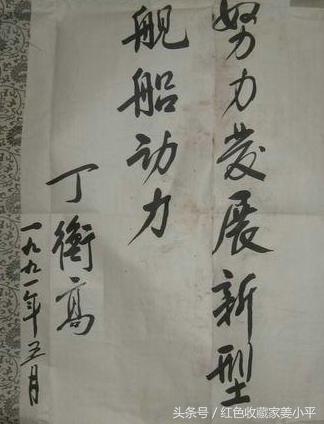 努力发展新型
舰船动力
丁衡高
一九九一年五月
头条号／红色收藏家姜小平